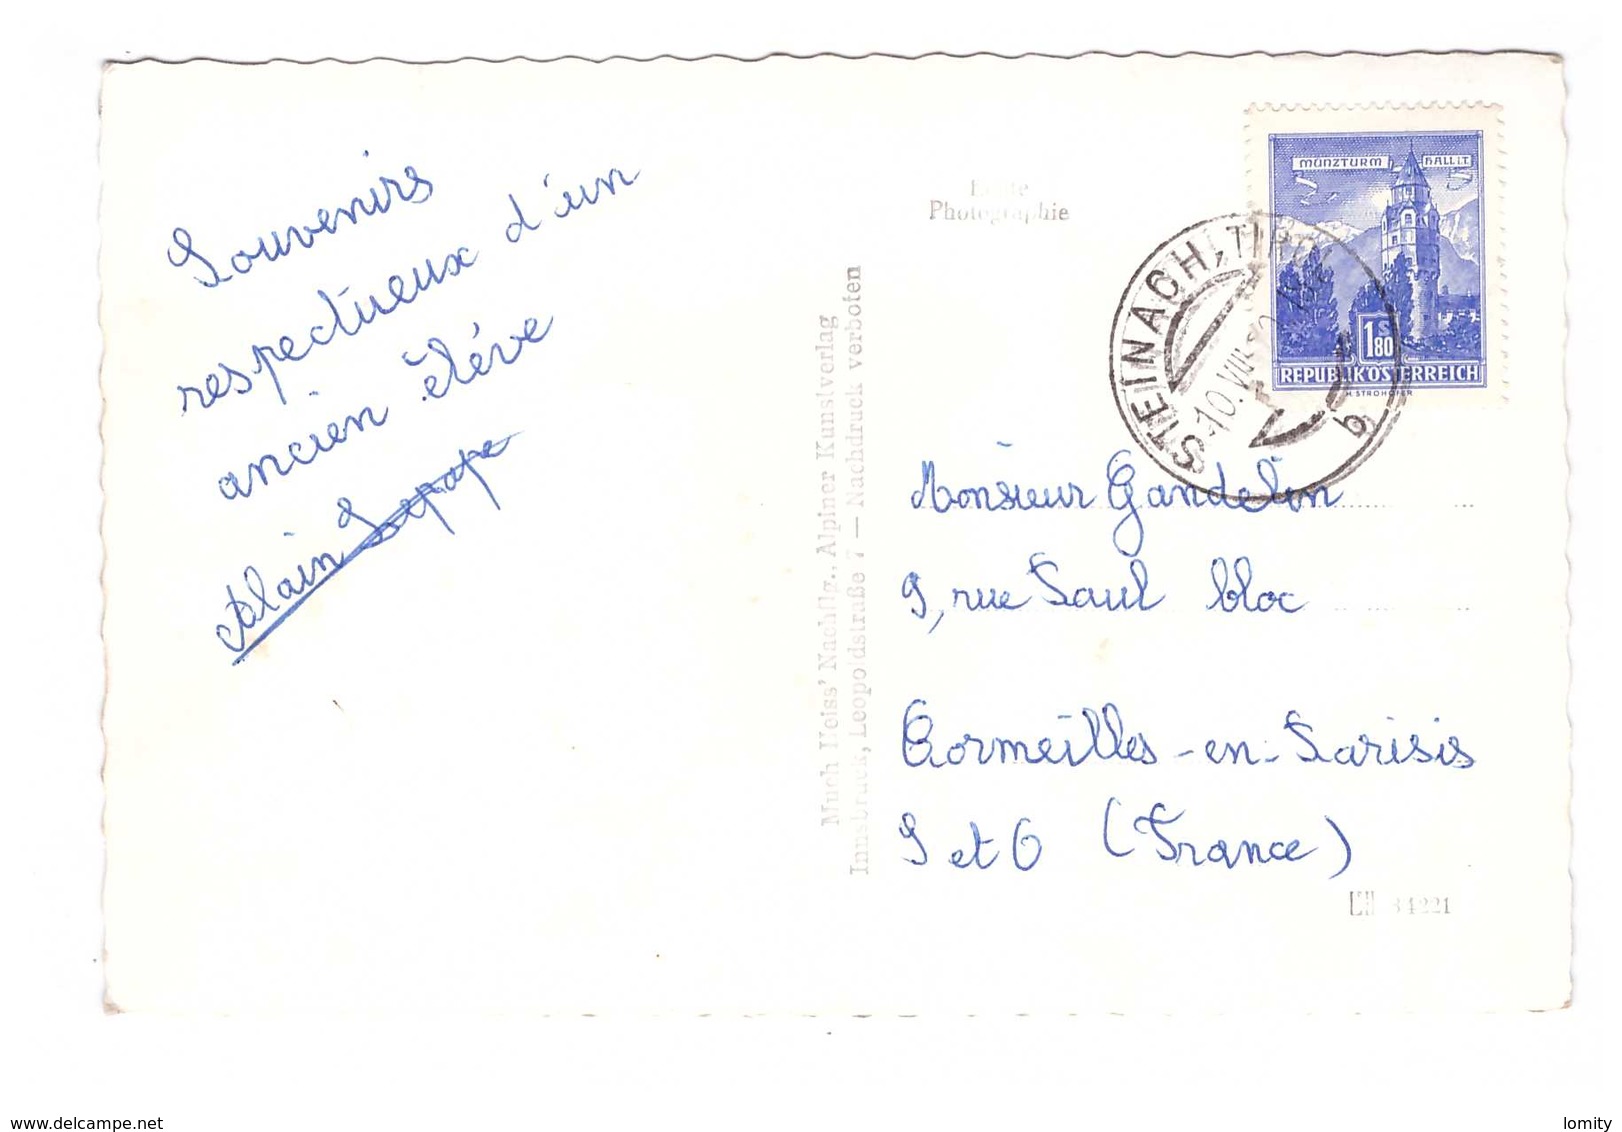 Souvenirs
respectueux d'un
ancien élève
Alain Lepape
Echte
Photographie
Much Heiss' Nachflg., Alpiner Kunstverlag
Innsbruck, Leopoldstraße 7 — Nachdruck verboten
MÜNZTURM HALL i.T.
1 S 80
REPUBLIK ÖSTERREICH
H. STROHOFER
STEINACH, TIROL
-10.VIII.
b
Monsieur Gandelin
9, rue Paul bloc
Cormeilles-en-Parisis
S et O (France)
34221
delcampe.net
lomity